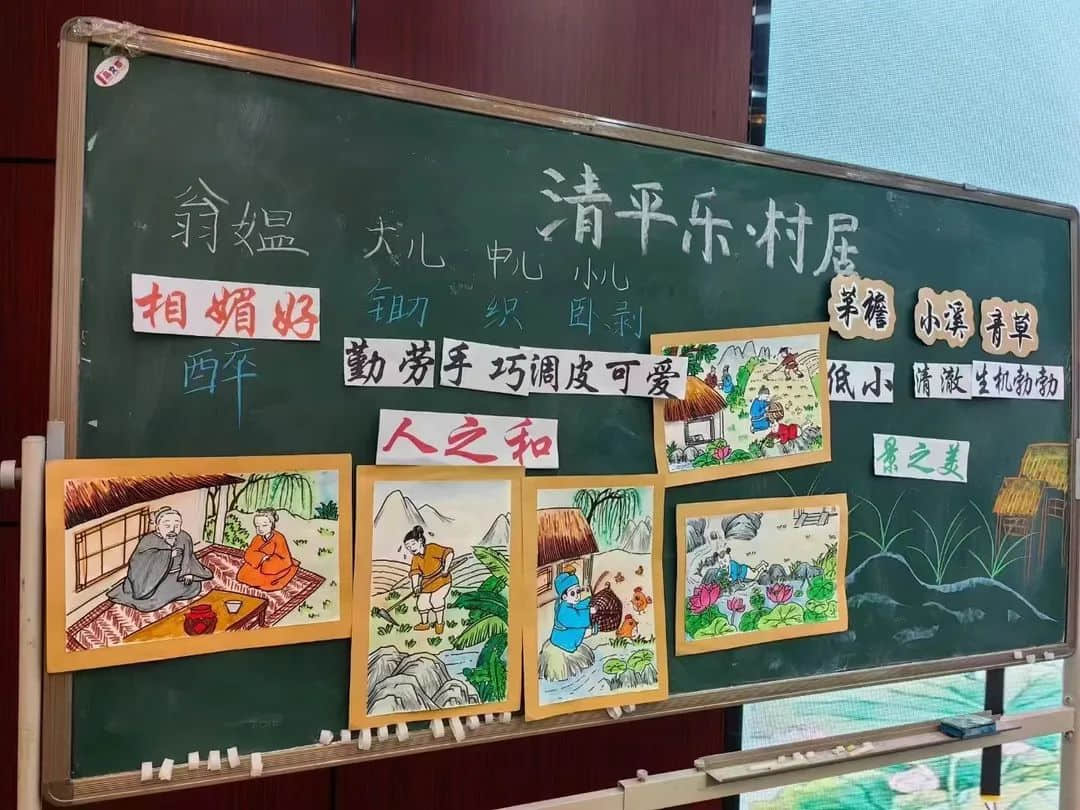 清平乐·村居
翁媪 大儿 中儿 小儿
相媚好 锄 织 卧剥
醉 勤劳 手巧 调皮可爱
人之和
茅檐 小溪 青草
低小 清澈 生机勃勃
景之美